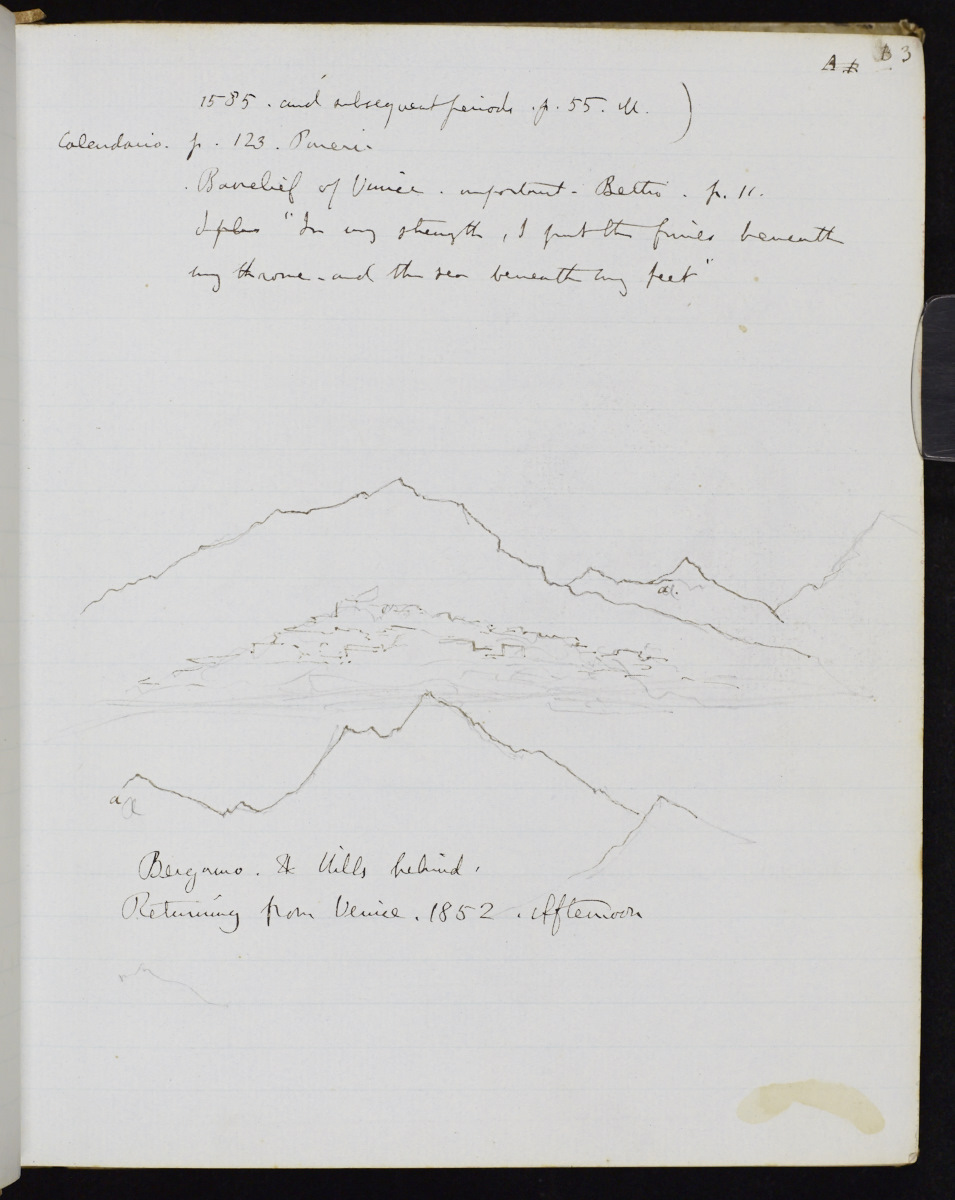 A B 3
1585. and subsequent periods. p. 55. M. )
Calendario. p. 123.
Basrelief of Venice. important. Bettio. p. 11.
"In my strength, I put the furies beneath
my throne - and the sea beneath my feet"
a.
a a
Bergamo. & Hills behind.
Returning from Venice. 1852. Afternoon